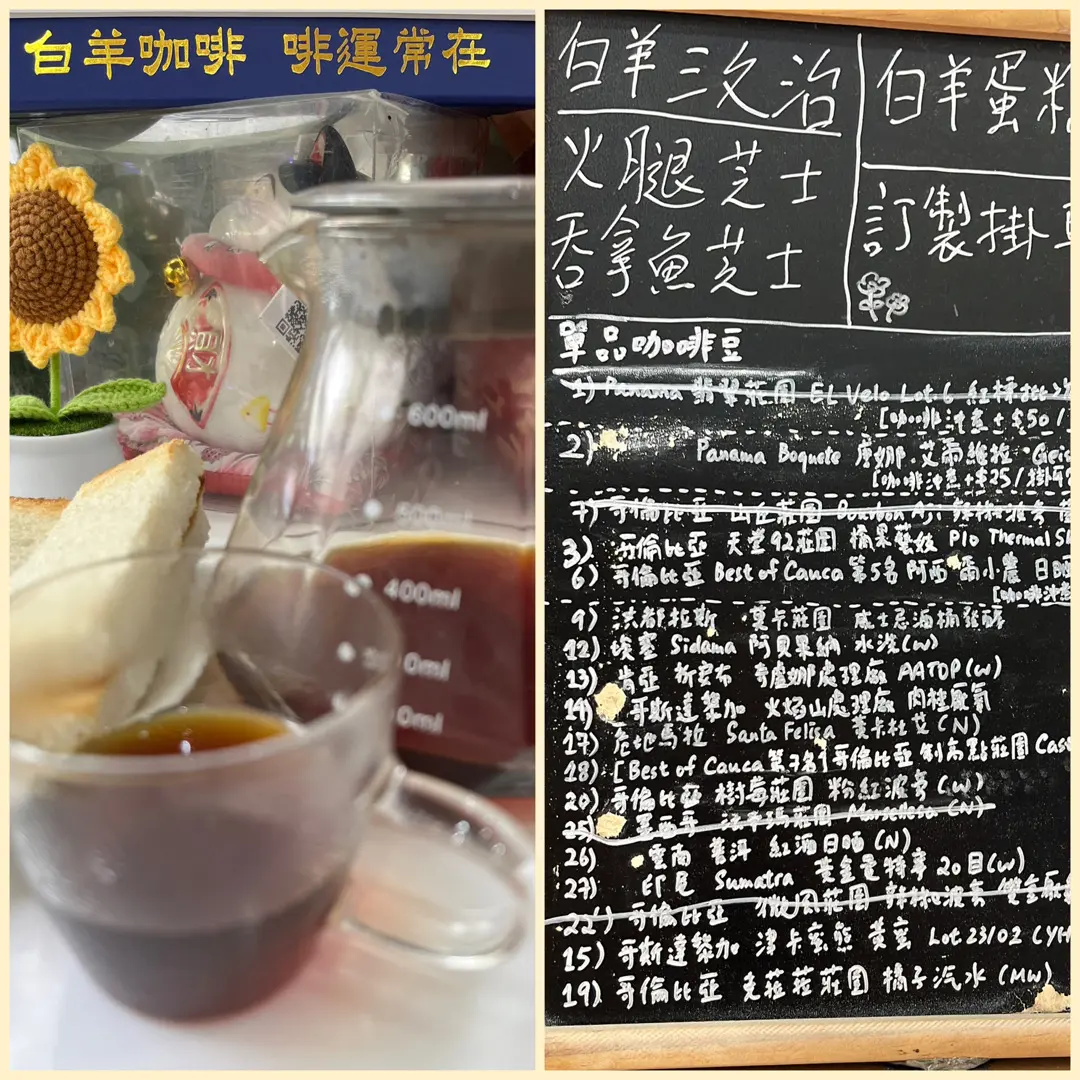 白羊咖啡 啡運常在
600ml
500ml
400ml
白羊三文治
火腿芝士
吞拿魚芝士
白羊蛋糕
訂製掛
單品咖啡豆
1) Panama 翡翠莊園 EL Velo Lot.6 紅標批次
[咖啡沖煮+$50/
2) Panama Boquete 唐娜.艾爾維拉
[咖啡沖煮+$25/掛
7) 哥倫比亞 山丘莊園 Bourbon Aji 辣椒波旁
3) 哥倫比亞 天堂92莊園 橋果藝妓 P10 Thermal
6) 哥倫比亞 Best of Cauca 第5名 阿西爾小農 日晒
[咖啡沖煮
9) 洪都拉斯 莫卡莊園 威士忌酒桶發酵
12) 埃塞 Sidama 阿貝果納 水洗(W)
13) 肯亞 奇盧娜處理廠 AATOP(W)
14) 哥斯達黎加 火焰山處理廠 肉桂厭氧
17) 危地馬拉 Santa Felisa (N)
18) [Best of Cauca 第7名] 哥倫比亞 制高點莊園
20) 哥倫比亞 樹莓莊園 粉紅波旁(W)
25) 墨西哥 Marsellesa (N)
26) 雲南 普洱 紅酒日晒(N)
27) 印尼 Sumatra 黃金曼特寧 20目(W)
22) 哥倫比亞 微風莊園 辣椒波旁 雙重
15) 哥斯達黎加 津卡蜜熊 黃蜜 Lot 23/02 (YH
19) 哥倫比亞 克菈菈莊園 橘子汽水(MW)